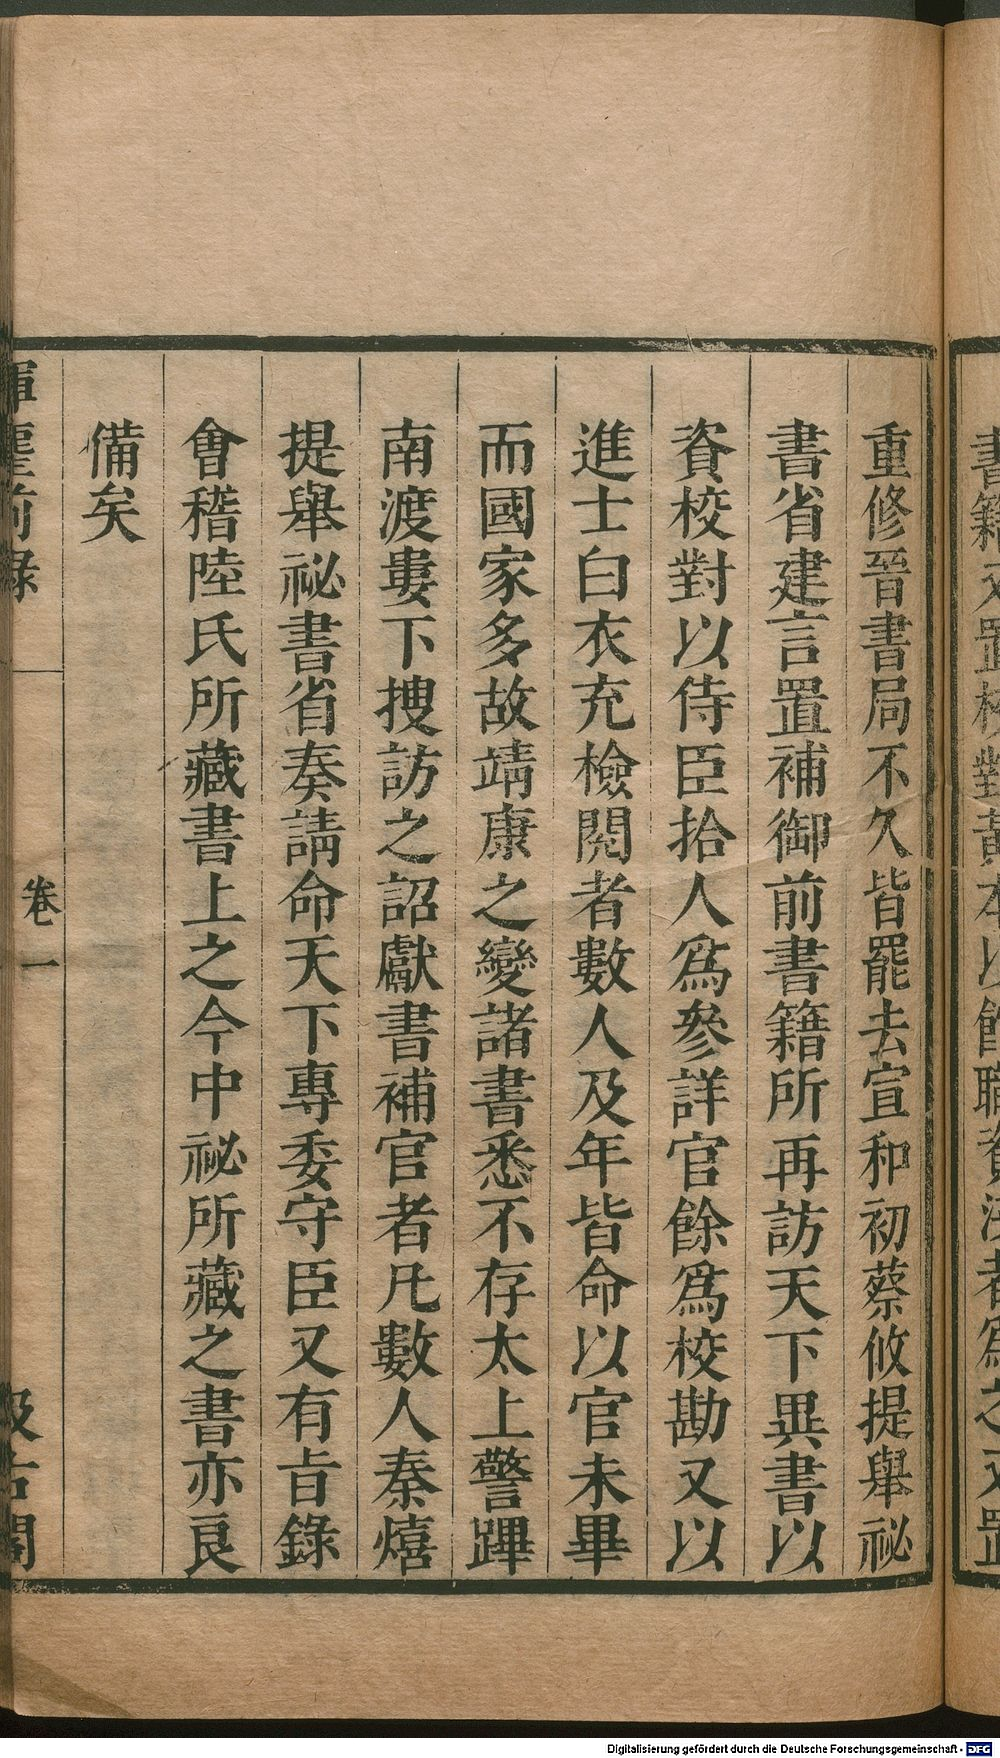 重修晉書局不久皆罷去宣和初蔡攸提舉祕
書省建言置補御前書籍所再訪天下異書以
資校對以侍臣拾人爲參詳官餘爲校勘又以
進士白衣充檢閱者數人及年皆命以官未畢
而國家多故靖康之變諸書悉不存太上警蹕
南渡婁下搜訪之詔獻書補官者凡數人秦熺
提舉祕書省奏請命天下專委守臣又有旨錄
會稽陸氏所藏書上之今中祕所藏之書亦良
備矣
揮麈前錄
卷一
汲古閣
Digitalisierung gefördert durch die Deutsche Forschungsgemeinschaft - DFG